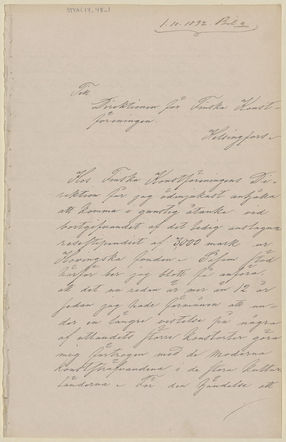 1.10.1892 Bil. 2.
Till
Direktionen för Finska Konst-
föreningen.
Helsingfors.
Hos Finska Konstföreningens Di-
rektion får jag ödmjukast anhålla
att komma i gunstig åtanke vid
bortgifvandet af det ledig anslagna
resestipendiet af 3000 mark ur
Hovingska fonden. Såsom stöd
härför ber jag blott få anföra,
att det nu redan är mer än 12 år
sedan jag hade förmånen att un-
der en längre vistelse på några
af utlandets större Konstorter göra
mig förtrogen med de moderna
Konststräfvandena i de stora Kultur
länderna. För den händelse att